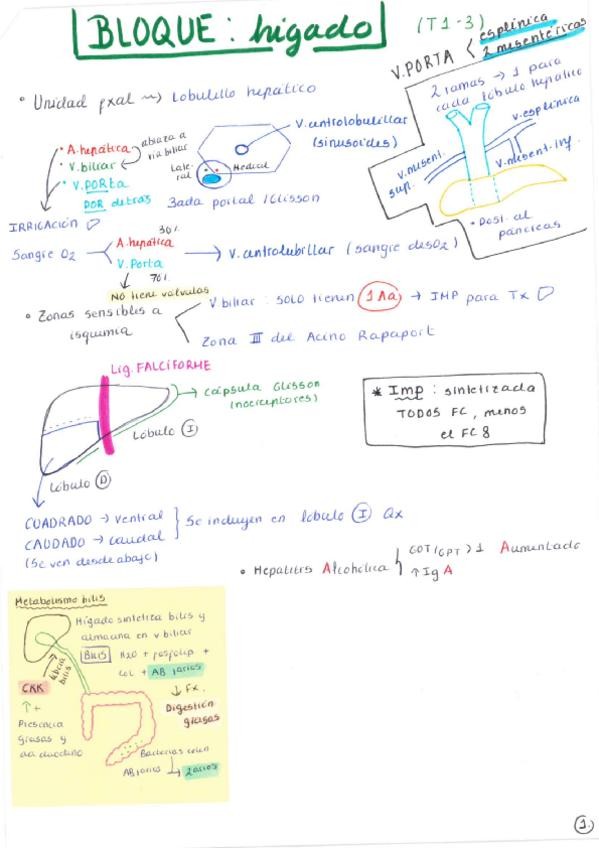 BLOQUE: hígado (T1-3)
V.PORTA < esplénica
2 mesentéricas
• Unidad fxal ~> Lobulillo hepático
2 ramas → 1 para
cada lóbulo hepático
v.esplénica
v.mesent. sup.
v.mesent. inf.
• Post. al
páncreas
• A.hepática
• V.biliar
• V.PORTA
POR detras
V.centrolobulillar
(sinusoides)
Late-
ral
Medial
Tríada portal /Glisson
IRRIGACIÓN
Sangre O2
30%
A.hepática
V.Porta
70%
→ V.centrolubillar (sangre desO2)
NO tiene válvulas
• Zonas sensibles a
isquemia
V biliar: SOLO tienen 1Aa → IMP para Tx
Zona III del Acino Rapaport
Lig.FALCIFORME
→ Cápsula Glisson
(nociceptores)
Lóbulo I
Lóbulo D
* Imp: sintetizada
TODOS FC, menos
el FC8
CUADRADO → ventral
CAUDADO → caudal
(Se ven desde abajo)
Se incluyen en lóbulo I Qx
• Hepatitis Alcohólica
GOT/GPT >1 Aumentado
↑IgA
Metabolismo bilis
Hígado sintetiza bilis y
almacena en v biliar
BILIS H2O + fosfolip +
col + AB 1arios
libera
bilis
CKK
↑+
Presencia
grasas y
aa duodeno
↓ Fx.
Digestión
grasas
Bacterias colon
AB1arios → 2arios
1.